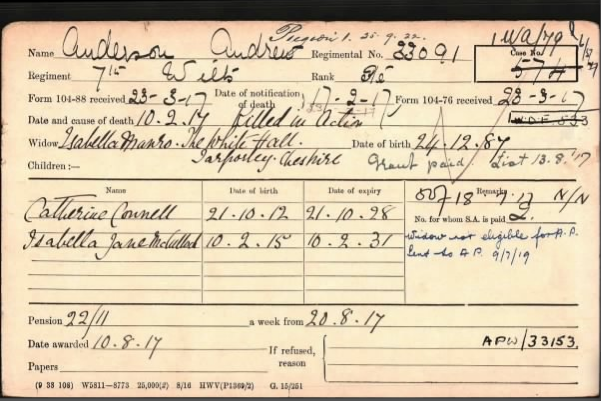 Region 1. 25.9.22.
1/WA/79
Name Anderson Andrew Regimental No. 23091
Case No.
574
Regiment 7th Wilts Rank Pte
Form 104-88 received 23-3-17 Date of notification of death 17-2-17 Form 104-76 received 28-3-17
Date and cause of death 10.2.17 Killed in Action
Widow Isabella Munro. The White Hall. Date of birth 24.12.87
Tarporley. Cheshire
Children:— Grant paid List 13.8.17
Name Date of birth Date of expiry Remarks
18.7.17 N/N
No. for whom S.A. is paid 2.
Catherine Connell 21.10.12 21.10.28
Isabella Jane McCulloch 10.2.15 10.2.31
Widow not eligible for A.P.
Sent to A.P. 9/7/19
Pension 22/11 a week from 20.8.17
Date awarded 10.8.17
If refused, reason
APW/33153.
Papers
(9 38 108) W5811—8773 25,000(2) 8/16 HWV(P1369/2) G. 15/251